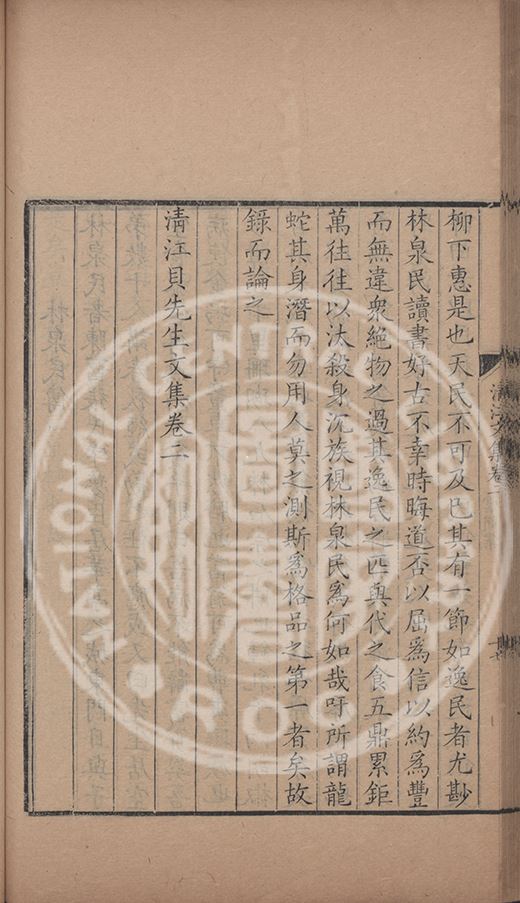 柳下惠是也天民不可及已其有一節如逸民者尤尠
林泉民讀書好古不幸時晦道否以屈爲信以約爲豐
而無違衆絶物之過其逸民之匹與代之食五鼎累鉅
萬往往以汰殺身沉族視林泉民爲何如哉吁所謂龍
蛇其身潛而勿用人莫之測斯爲格品之第一者矣故
錄而論之
清江貝先生文集卷二